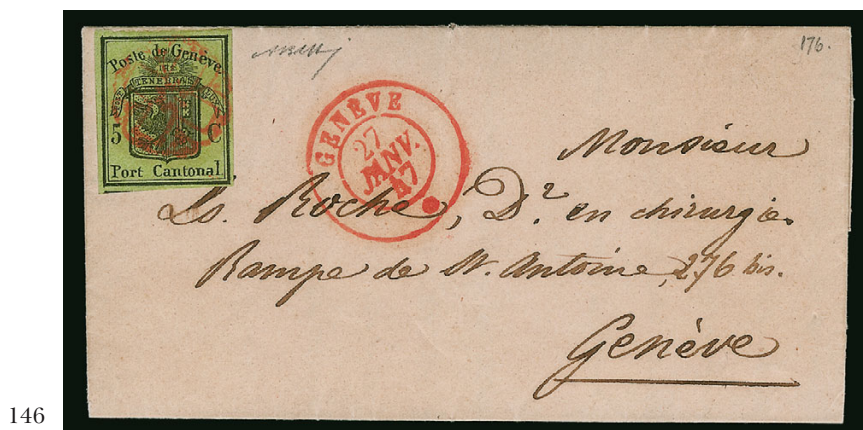 Poste de Genève
TENEBRAS
5 C
Port Cantonal
176.
GENÈVE
27
JANV.
47
Monsieur
Ls. Roche, Dr. en chirurgie.
Rampe de St. Antoine, 276 bis.
Genève
146